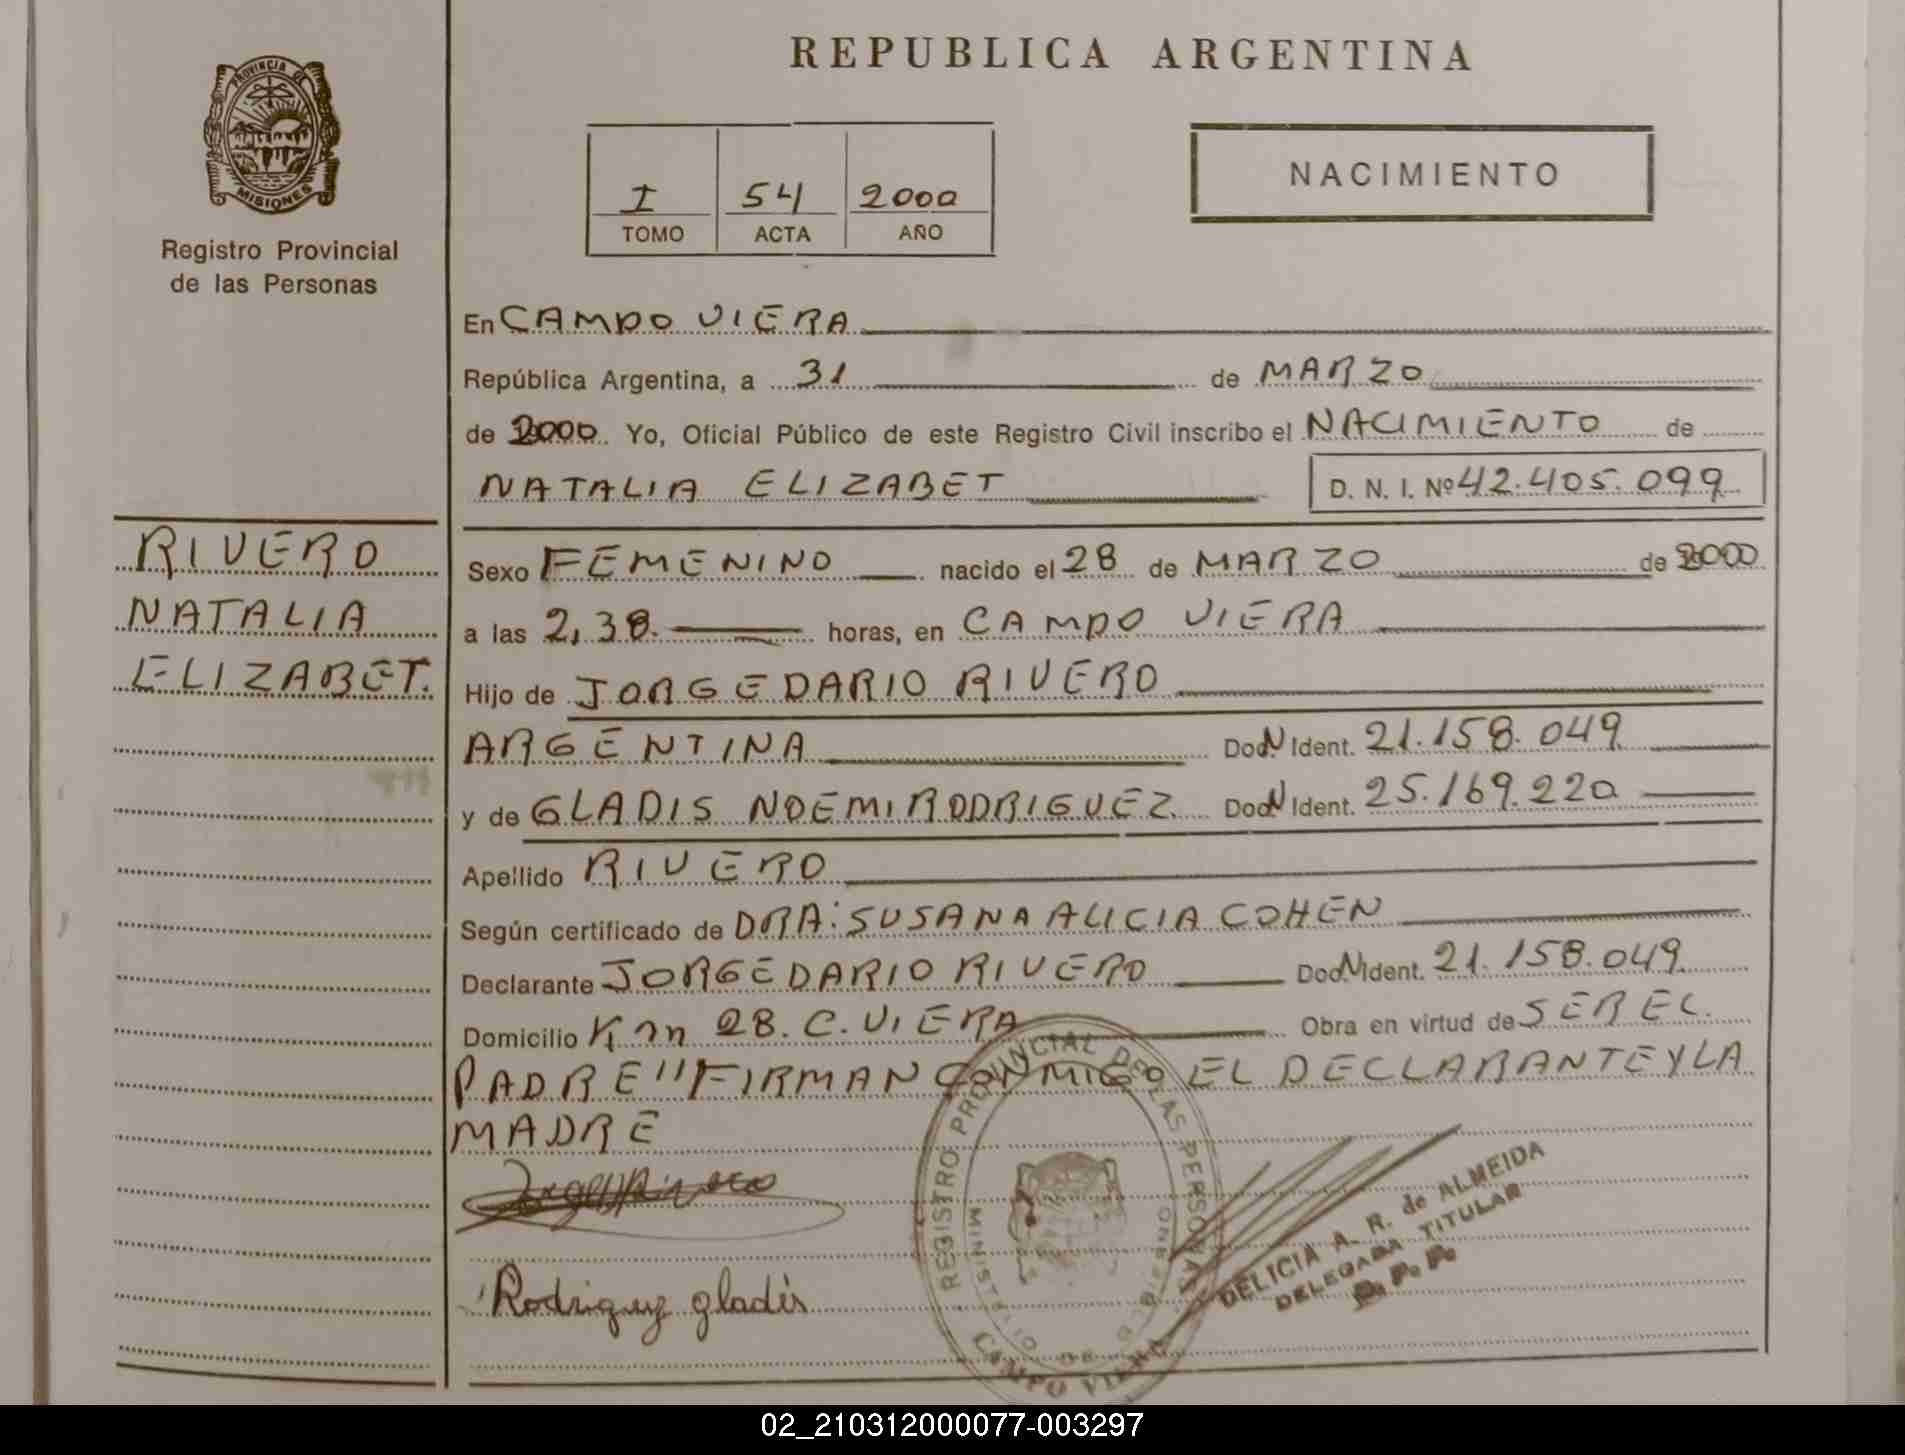 REPUBLICA ARGENTINA
PROVINCIA DE
MISIONES
Registro Provincial
de las Personas
I 54 2000
TOMO ACTA AÑO
NACIMIENTO
En CAMPO VIERA
República Argentina, a 31 de MARZO
de 2000 Yo, Oficial Público de este Registro Civil inscribo el NACIMIENTO de
NATALIA ELIZABET D. N. I. Nº 42.405.099
RIVERO
NATALIA
ELIZABET.
Sexo FEMENINO nacido el 28 de MARZO de 2000
a las 2,38. horas, en CAMPO VIERA
Hijo de JORGE DARIO RIVERO
ARGENTINA Doc. N Ident. 21.158.049
y de GLADIS NOEMI RODRIGUEZ Doc. N Ident. 25.169.220
Apellido RIVERO
Según certificado de DRA: SUSANA ALICIA COHEN
Declarante JORGE DARIO RIVERO Doc. N Ident. 21.158.049
Domicilio Km 28. C. VIERA Obra en virtud de SER EL
PADRE" FIRMAN CONMIGO EL DECLARANTE Y LA
MADRE
Rodriguez gladis
REGISTRO PROVINCIAL DE LAS PERSONAS
CAMPO VIERA
DELICIA A. R. de ALMEIDA
DELEGADA TITULAR
R. P. P.
02_210312000077-003297